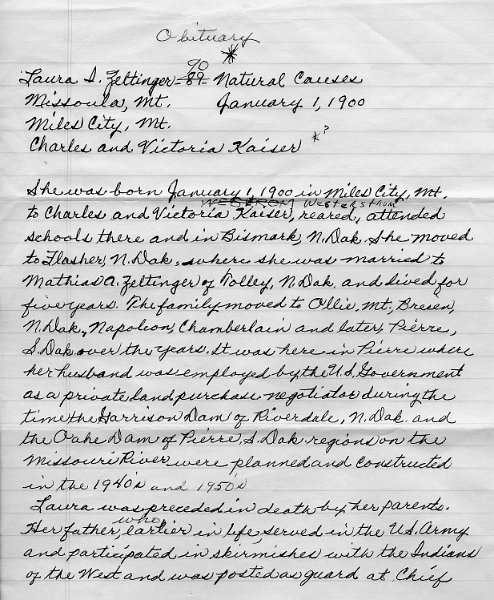 Obituary
*
90
Laura S. Zeltinger - 89 - Natural Causes
Missoula, Mt. January 1, 1900
Miles City, Mt.
Charles and Victoria Kaiser *?
She was born January 1, 1900 in Miles City, Mt.
WESTROM Westerstrom
to Charles and Victoria Kaiser, reared, attended
schools there and in Bismark, N. Dak. She moved
to Flasher, N. Dak., where she was married to
Mathias A. Zeltinger of Tolley, N. Dak. and lived for
five years. The family moved to Ollie, Mt., Bresen,
N. Dak., Napoleon, Chamberlain and later, Pierre,
S. Dak over the years. It was here in Pierre where
her husband was employed by the U.S. Government
as a private land purchase-negotiator during the
time the Garrison Dam of Riverdale, N. Dak. and
the Oahe Dam of Pierre, S. Dak. regions on the
Missouri River were planned and constructed
in the 1940's and 1950's
Laura was preceded in death by her parents.
who
Her father, earlier in life, served in the U.S. Army
and participated in skirmishes with the Indians
of the West and was posted as guard at Chief